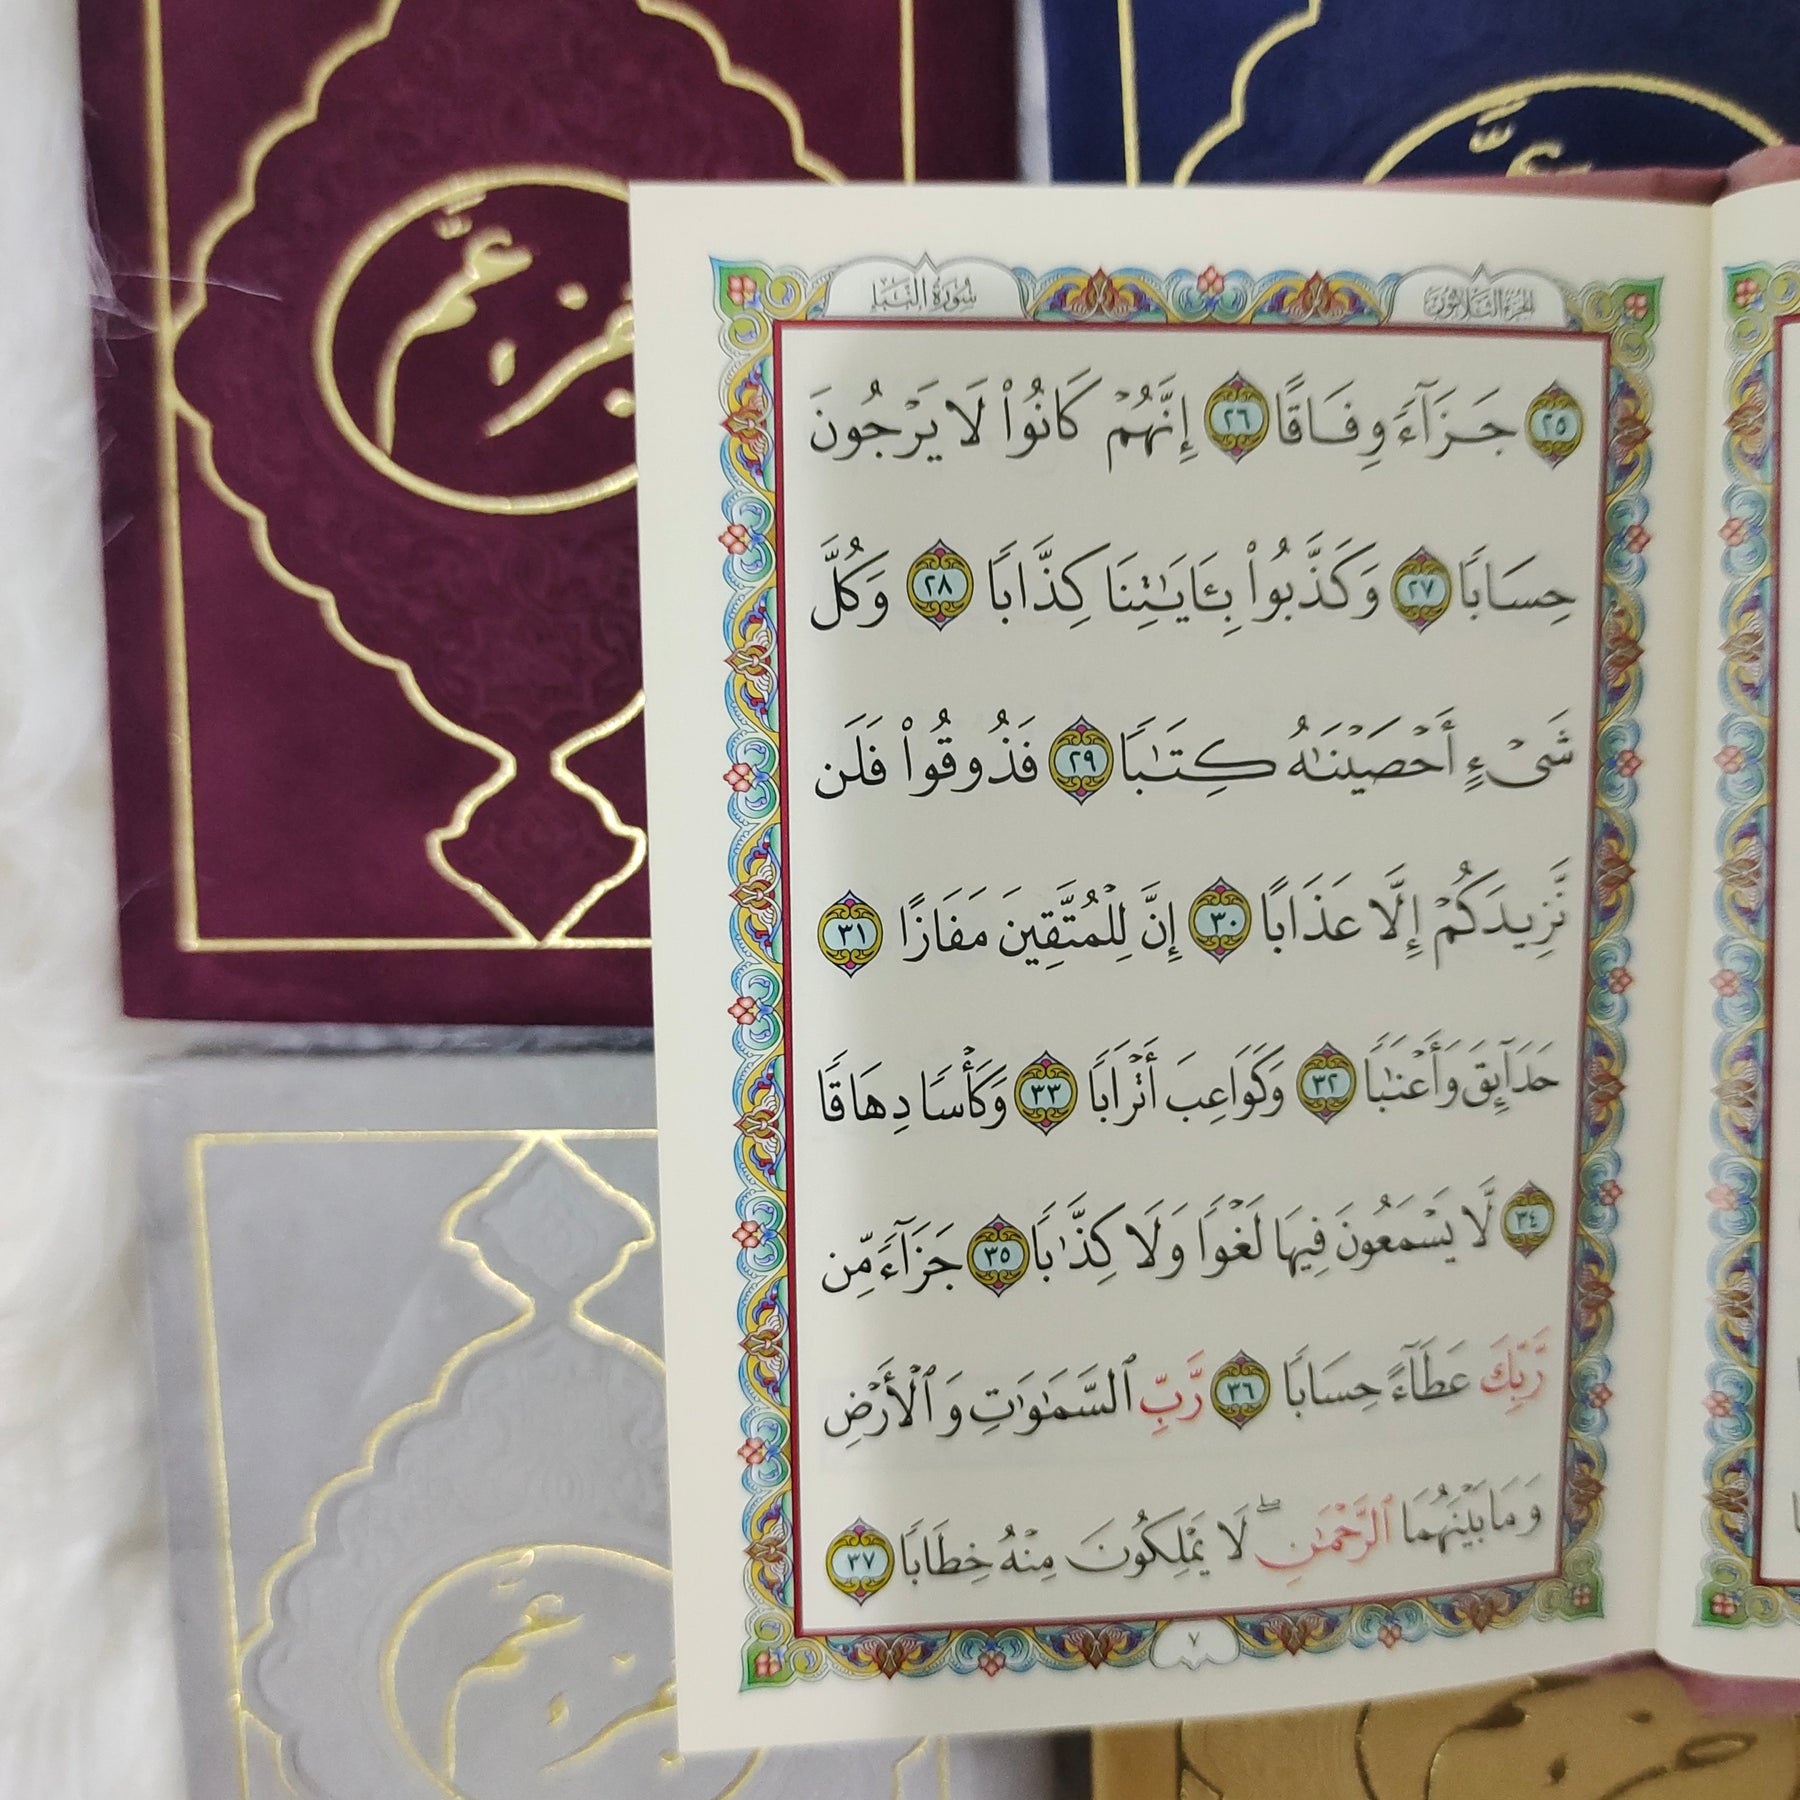 جزء عم
عم
سُورَةُ النَّبَإِ
الجُزْءُ الثَّلَاثُونَ
٢٥ جَزَآءً وِفَاقًا ٢٦ إِنَّهُمْ كَانُوا۟ لَا يَرْجُونَ
حِسَابًا ٢٧ وَكَذَّبُوا۟ بِـَٔايَـٰتِنَا كِذَّابًا ٢٨ وَكُلَّ
شَىْءٍ أَحْصَيْنَـٰهُ كِتَـٰبًا ٢٩ فَذُوقُوا۟ فَلَن
نَّزِيدَكُمْ إِلَّا عَذَابًا ٣٠ إِنَّ لِلْمُتَّقِينَ مَفَازًا ٣١
حَدَآئِقَ وَأَعْنَـٰبًا ٣٢ وَكَوَاعِبَ أَتْرَابًا ٣٣ وَكَأْسًا دِهَاقًا
٣٤ لَّا يَسْمَعُونَ فِيهَا لَغْوًا وَلَا كِذَّٰبًا ٣٥ جَزَآءً مِّن
رَّبِّكَ عَطَآءً حِسَابًا ٣٦ رَّبِّ ٱلسَّمَـٰوَٰتِ وَٱلْأَرْضِ
وَمَا بَيْنَهُمَا ٱلرَّحْمَـٰنِ ۖ لَا يَمْلِكُونَ مِنْهُ خِطَابًا ٣٧
٧
جزء عم
جزء